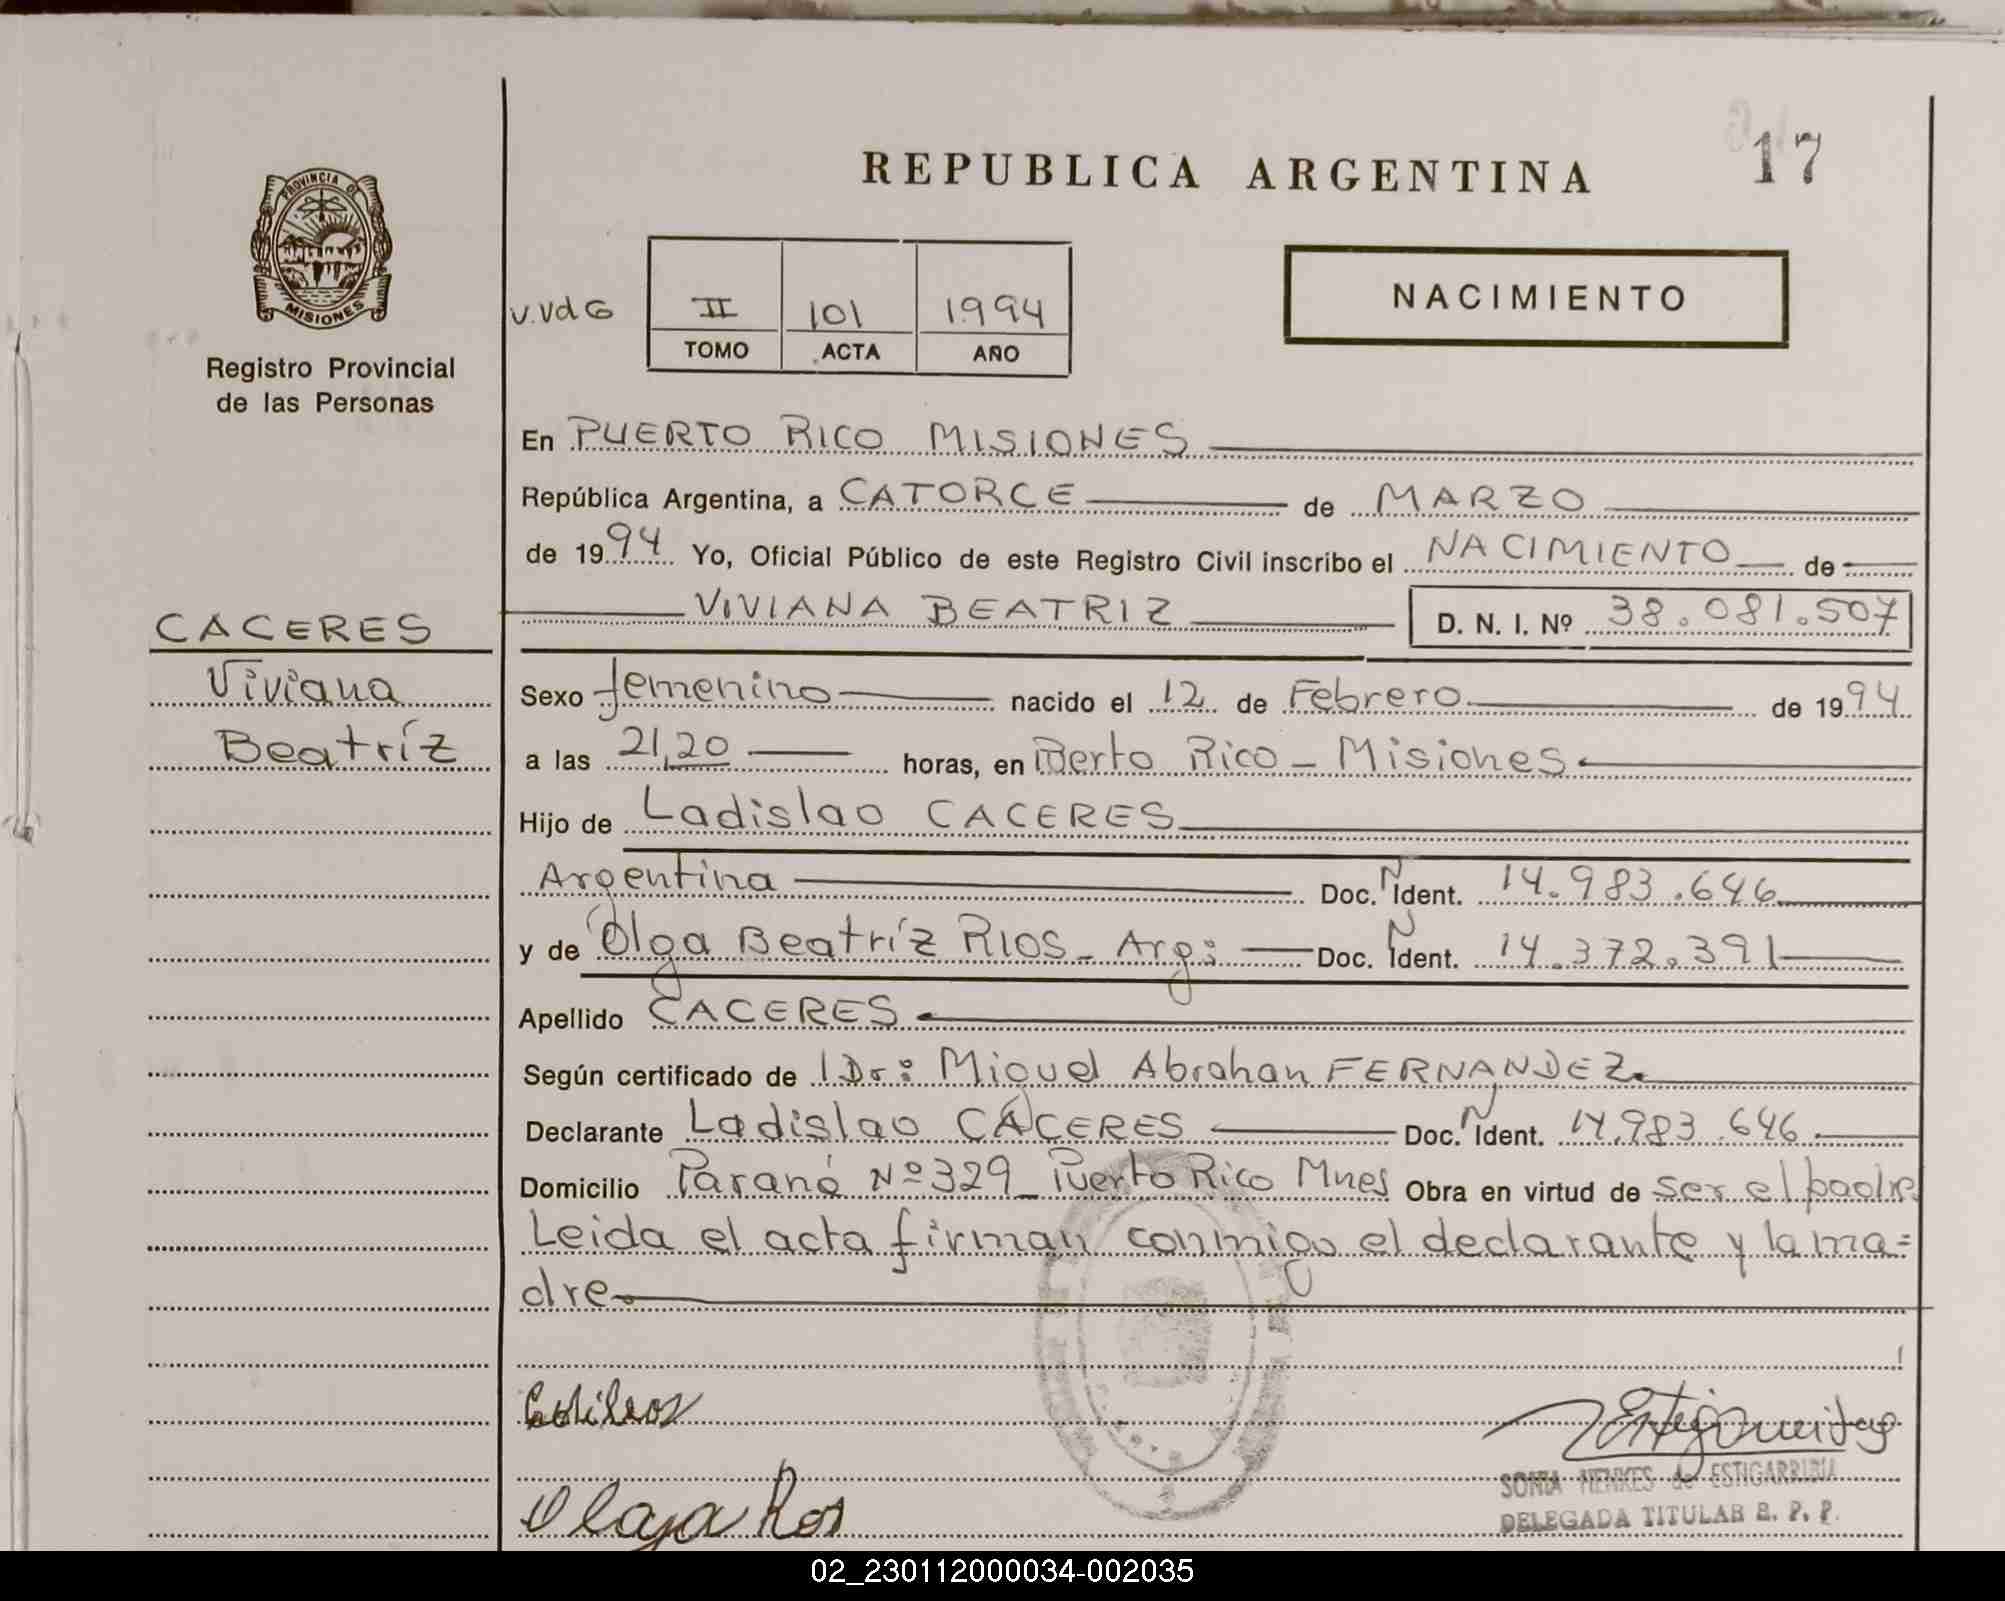 REPUBLICA ARGENTINA
17
PROVINCIA DE
MISIONES
Registro Provincial
de las Personas
V.VdG
II 101 1994
TOMO ACTA AÑO
NACIMIENTO
En PUERTO RICO MISIONES
República Argentina, a CATORCE de MARZO
de 1994 Yo, Oficial Público de este Registro Civil inscribo el NACIMIENTO de
VIVIANA BEATRIZ D. N. I. Nº 38.081.507
CACERES
Viviana
Beatríz
Sexo femenino nacido el 12 de Febrero de 1994
a las 21,20 horas, en Perto Rico - Misiones
Hijo de Ladislao CACERES
Argentina Doc. N Ident. 14.983.646
y de Olga Beatríz RIOS - Arg: Doc. N Ident. 14.372.391
Apellido CACERES
Según certificado de l Dr: Miguel Abrahan FERNANDEZ
Declarante Ladislao CACERES Doc. N Ident. 14.983.646
Domicilio Paraná Nº 329 - Puerto Rico Mnes Obra en virtud de ser el padre
Leida el acta firman conmigo el declarante y la ma=
dre
SONIA MENKES de ESTIGARRIBIA
DELEGADA TITULAR R. P. P.
02_230112000034-002035